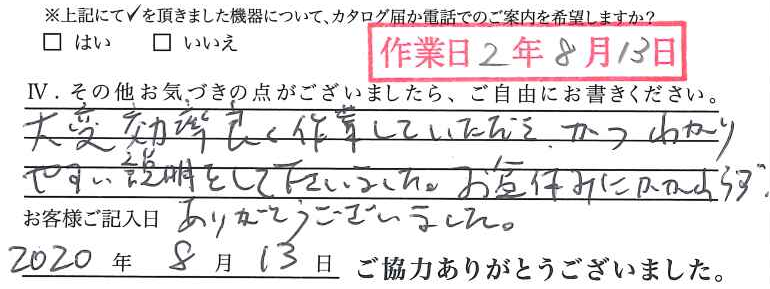 ※上記にて✓を頂きました機器について、カタログ届か電話でのご案内を希望しますか?
□ はい □ いいえ
作業日 2年 8月13日
Ⅳ. その他お気づきの点がございましたら、ご自由にお書きください。
大変効率良く作業していただき、かつわかり
やすい説明をして下さいました。お盆休みにかかわらず、
お客様ご記入日 ありがとうございました。
2020 年 8 月 13 日 ご協力ありがとうございました。